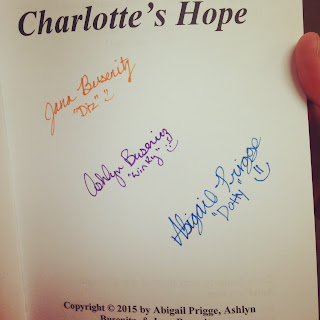 Charlotte's Hope
Jana Busenitz
"Ditz" :)
Ashlyn Busenitz
"Winky" ;)
Abigail Prigge
"Dotty" :)
Copyright © 2015 by Abigail Prigge, Ashlyn
Busenitz, &